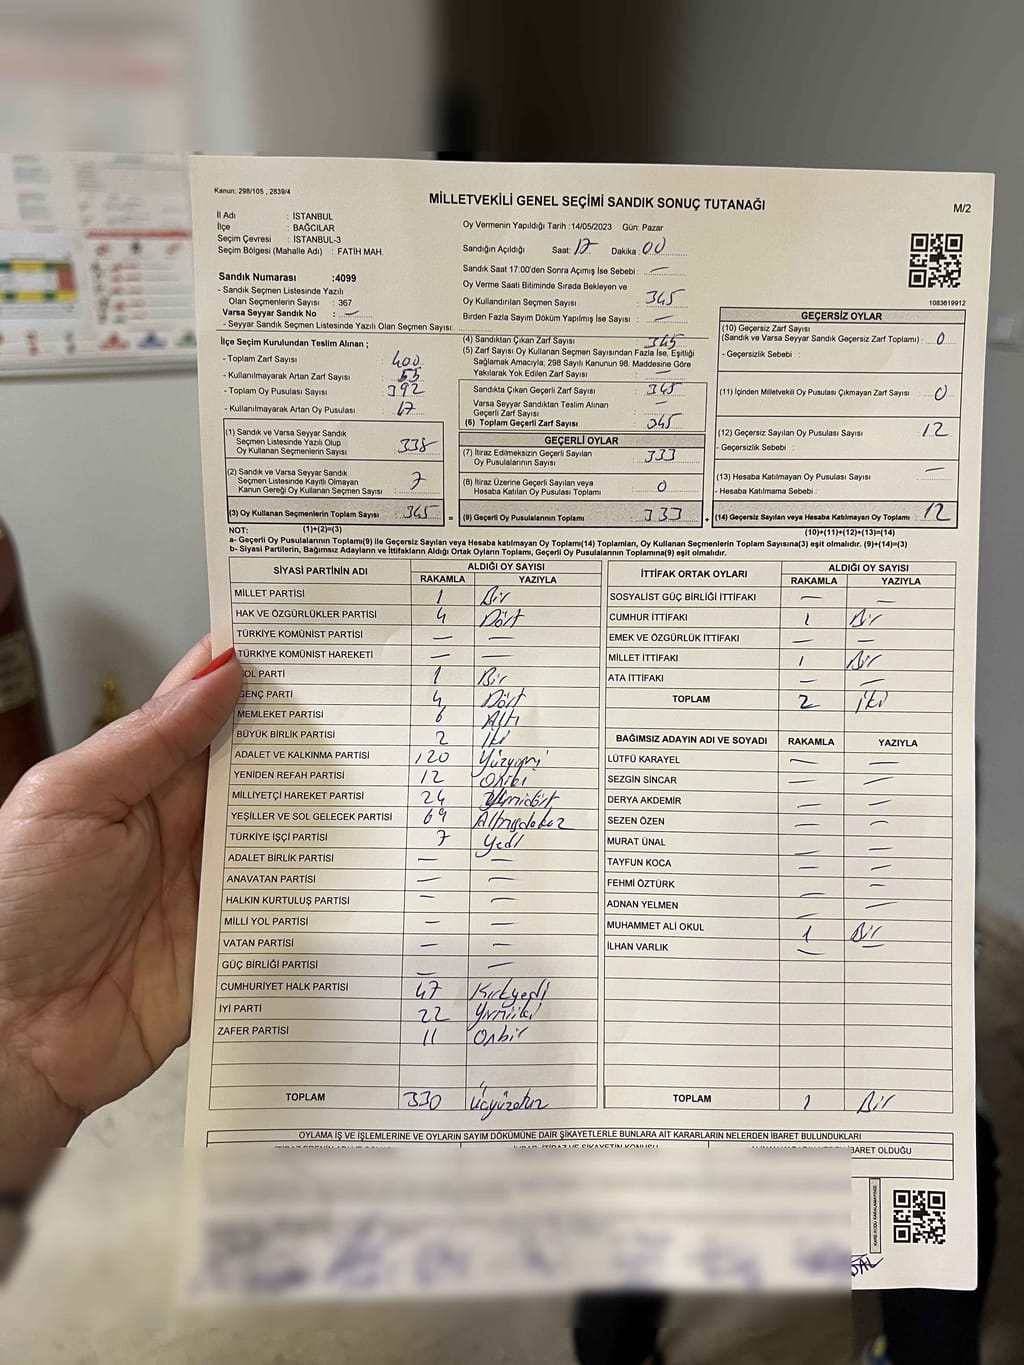 Kanun; 298/105 , 2839/4
MİLLETVEKİLİ GENEL SEÇİMİ SANDIK SONUÇ TUTANAĞI
M/2
İl Adı : İSTANBUL
İlçe : BAĞCILAR
Seçim Çevresi : İSTANBUL-3
Seçim Bölgesi (Mahalle Adı) : FATİH MAH.
Oy Vermenin Yapıldığı Tarih :14/05/2023 Gün: Pazar
Sandığın Açıldığı Saat: 17 Dakika : 00
Sandık Saat 17:00'den Sonra Açılmış İse Sebebi : —
Oy Verme Saati Bitiminde Sırada Bekleyen ve
Oy Kullandırılan Seçmen Sayısı : 345
Birden Fazla Sayım Döküm Yapılmış İse Sayısı : —
1083619912
Sandık Numarası :4099
- Sandık Seçmen Listesinde Yazılı
Olan Seçmenlerin Sayısı : 367
Varsa Seyyar Sandık No : —
- Seyyar Sandık Seçmen Listesinde Yazılı Olan Seçmen Sayısı:
İlçe Seçim Kurulundan Teslim Alınan ;
- Toplam Zarf Sayısı : 400
- Kullanılmayarak Artan Zarf Sayısı : 55
- Toplam Oy Pusulası Sayısı : 392
- Kullanılmayarak Artan Oy Pusulası : 47
(1) Sandık ve Varsa Seyyar Sandık
Seçmen Listesinde Yazılı Olup
Oy Kullanan Seçmenlerin Sayısı : 338
(2) Sandık ve Varsa Seyyar Sandık
Seçmen Listesinde Kayıtlı Olmayan
Kanun Gereği Oy Kullanan Seçmen Sayısı : 7
(3) Oy Kullanan Seçmenlerin Toplam Sayısı : 345
(1)+(2)=(3)
(4) Sandıktan Çıkan Zarf Sayısı : 345
(5) Zarf Sayısı Oy Kullanan Seçmen Sayısından Fazla İse, Eşitliği
Sağlamak Amacıyla; 298 Sayılı Kanunun 98. Maddesine Göre
Yakılarak Yok Edilen Zarf Sayısı : —
Sandıkta Çıkan Geçerli Zarf Sayısı : 345
Varsa Seyyar Sandıktan Teslim Alınan
Geçerli Zarf Sayısı : —
(6) Toplam Geçerli Zarf Sayısı : 345
GEÇERLİ OYLAR
(7) İtiraz Edilmeksizin Geçerli Sayılan
Oy Pusulalarının Sayısı : 333
(8) İtiraz Üzerine Geçerli Sayılan veya
Hesaba Katılan Oy Pusulası Toplamı : 0
= (9) Geçerli Oy Pusulalarının Toplamı : 333 +
GEÇERSİZ OYLAR
(10) Geçersiz Zarf Sayısı
(Sandık ve Varsa Seyyar Sandık Geçersiz Zarf Toplamı) : 0
- Geçersizlik Sebebi :
(11) İçinden Milletvekili Oy Pusulası Çıkmayan Zarf Sayısı : 0
(12) Geçersiz Sayılan Oy Pusulası Sayısı : 12
- Geçersizlik Sebebi :
(13) Hesaba Katılmayan Oy Pusulası Sayısı : —
- Hesaba Katılmama Sebebi :
(14) Geçersiz Sayılan veya Hesaba Katılmayan Oy Toplamı : 12
(10)+(11)+(12)+(13)=(14)
NOT:
a- Geçerli Oy Pusulasının Toplamı(9) ile Geçersiz Sayılan veya Hesaba katılmayan Oy Toplamı(14) Toplamları, Oy Kullanan Seçmenlerin Toplam Sayısına(3) eşit olmalıdır. (9)+(14)=(3)
b- Siyasi Partilerin, Bağımsız Adayların ve İttifakların Aldığı Ortak Oyların Toplamı, Geçerli Oy Pusulasının Toplamına(9) eşit olmalıdır.
SİYASİ PARTİNİN ADI
ALDIĞI OY SAYISI
RAKAMLA YAZIYLA
MİLLET PARTİSİ 1 Bir
HAK VE ÖZGÜRLÜKLER PARTİSİ 4 Dört
TÜRKİYE KOMÜNİST PARTİSİ — —
TÜRKİYE KOMÜNİST HAREKETİ — —
SOL PARTİ 1 Bir
GENÇ PARTİ 4 Dört
MEMLEKET PARTİSİ 6 Altı
BÜYÜK BİRLİK PARTİSİ 2 İki
ADALET VE KALKINMA PARTİSİ 120 Yüzyirmi
YENİDEN REFAH PARTİSİ 12 Oniki
MİLLİYETÇİ HAREKET PARTİSİ 24 Yirmidört
YEŞİLLER VE SOL GELECEK PARTİSİ 69 Altmışdokuz
TÜRKİYE İŞÇİ PARTİSİ 7 Yedi
ADALET BİRLİK PARTİSİ — —
ANAVATAN PARTİSİ — —
HALKIN KURTULUŞ PARTİSİ — —
MİLLİ YOL PARTİSİ — —
VATAN PARTİSİ — —
GÜÇ BİRLİĞİ PARTİSİ — —
CUMHURİYET HALK PARTİSİ 47 Kırkyedi
İYİ PARTİ 22 Yirmiiki
ZAFER PARTİSİ 11 Onbir
TOPLAM 330 Üçyüzotuz
İTTİFAK ORTAK OYLARI
ALDIĞI OY SAYISI
RAKAMLA YAZIYLA
SOSYALİST GÜÇ BİRLİĞİ İTTİFAKI — —
CUMHUR İTTİFAKI 1 Bir
EMEK VE ÖZGÜRLÜK İTTİFAKI — —
MİLLET İTTİFAKI 1 Bir
ATA İTTİFAKI — —
TOPLAM 2 İki
BAĞIMSIZ ADAYIN ADI VE SOYADI RAKAMLA YAZIYLA
LÜTFÜ KARAYEL — —
SEZGİN SİNCAR — —
DERYA AKDEMİR — —
SEZEN ÖZEN — —
MURAT ÜNAL — —
TAYFUN KOCA — —
FEHMİ ÖZTÜRK — —
ADNAN YELMEN — —
MUHAMMET ALİ OKUL 1 Bir
İLHAN VARLIK — —
TOPLAM 1 Bir
OYLAMA İŞ VE İŞLEMLERİNE VE OYLARIN SAYIM DÖKÜMÜNE DAİR ŞİKAYETLERLE BUNLARA AİT KARARLARIN NELERDEN İBARET BULUNDUKLARI
İBARET OLDUĞU